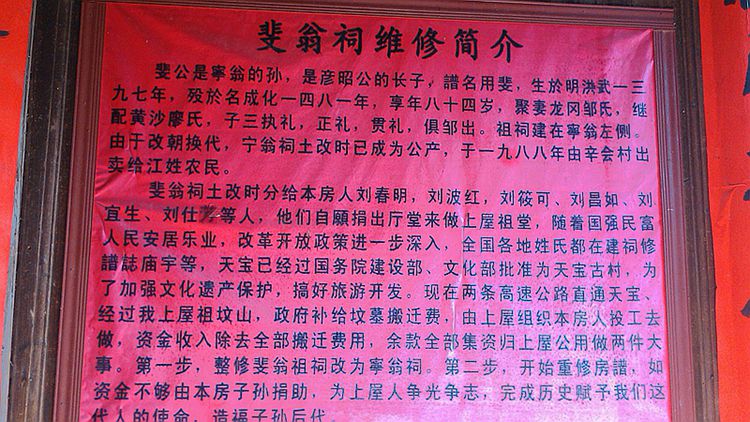 斐翁祠维修简介
斐公是寧翁的孙，是彦昭公的长子，譜名用斐，生於明洪武一三
九七年，殁於名成化一四八一年，享年八十四岁，聚妻龙冈邹氏，继
配黄沙廖氏，子三执礼，正礼，贯礼，俱邹出。祖祠建在寧翁左侧。
由于改朝换代，宁翁祠土改时已成为公产，于一九八八年由辛会村出
卖给江姓农民。
斐翁祠土改时分给本房人刘春明，刘波红，刘筱可、刘昌如、刘
宜生、刘仕等人，他们自願捐出厅堂来做上屋祖堂，随着国强民富
人民安居乐业，改革开放政策进一步深入，全国各地姓氏都在建祠修
譜誌庙宇等，天宝已经过国务院建设部、文化部批准为天宝古村，为
了加强文化遗产保护，搞好旅游开发。现在两条高速公路直通天宝、
经过我上屋祖坟山，政府补给坟墓搬迁费，由上屋组织本房人投工去
做，资金收入除去全部搬迁费用，余款全部集资归上屋公用做两件大
事。第一步，整修斐翁祖祠改为寧翁祠。第二步，开始重修房譜，如
资金不够由本房子孙捐助，为上屋人争光争志，完成历史赋予我们这
代人的使命，造福子孙后代。